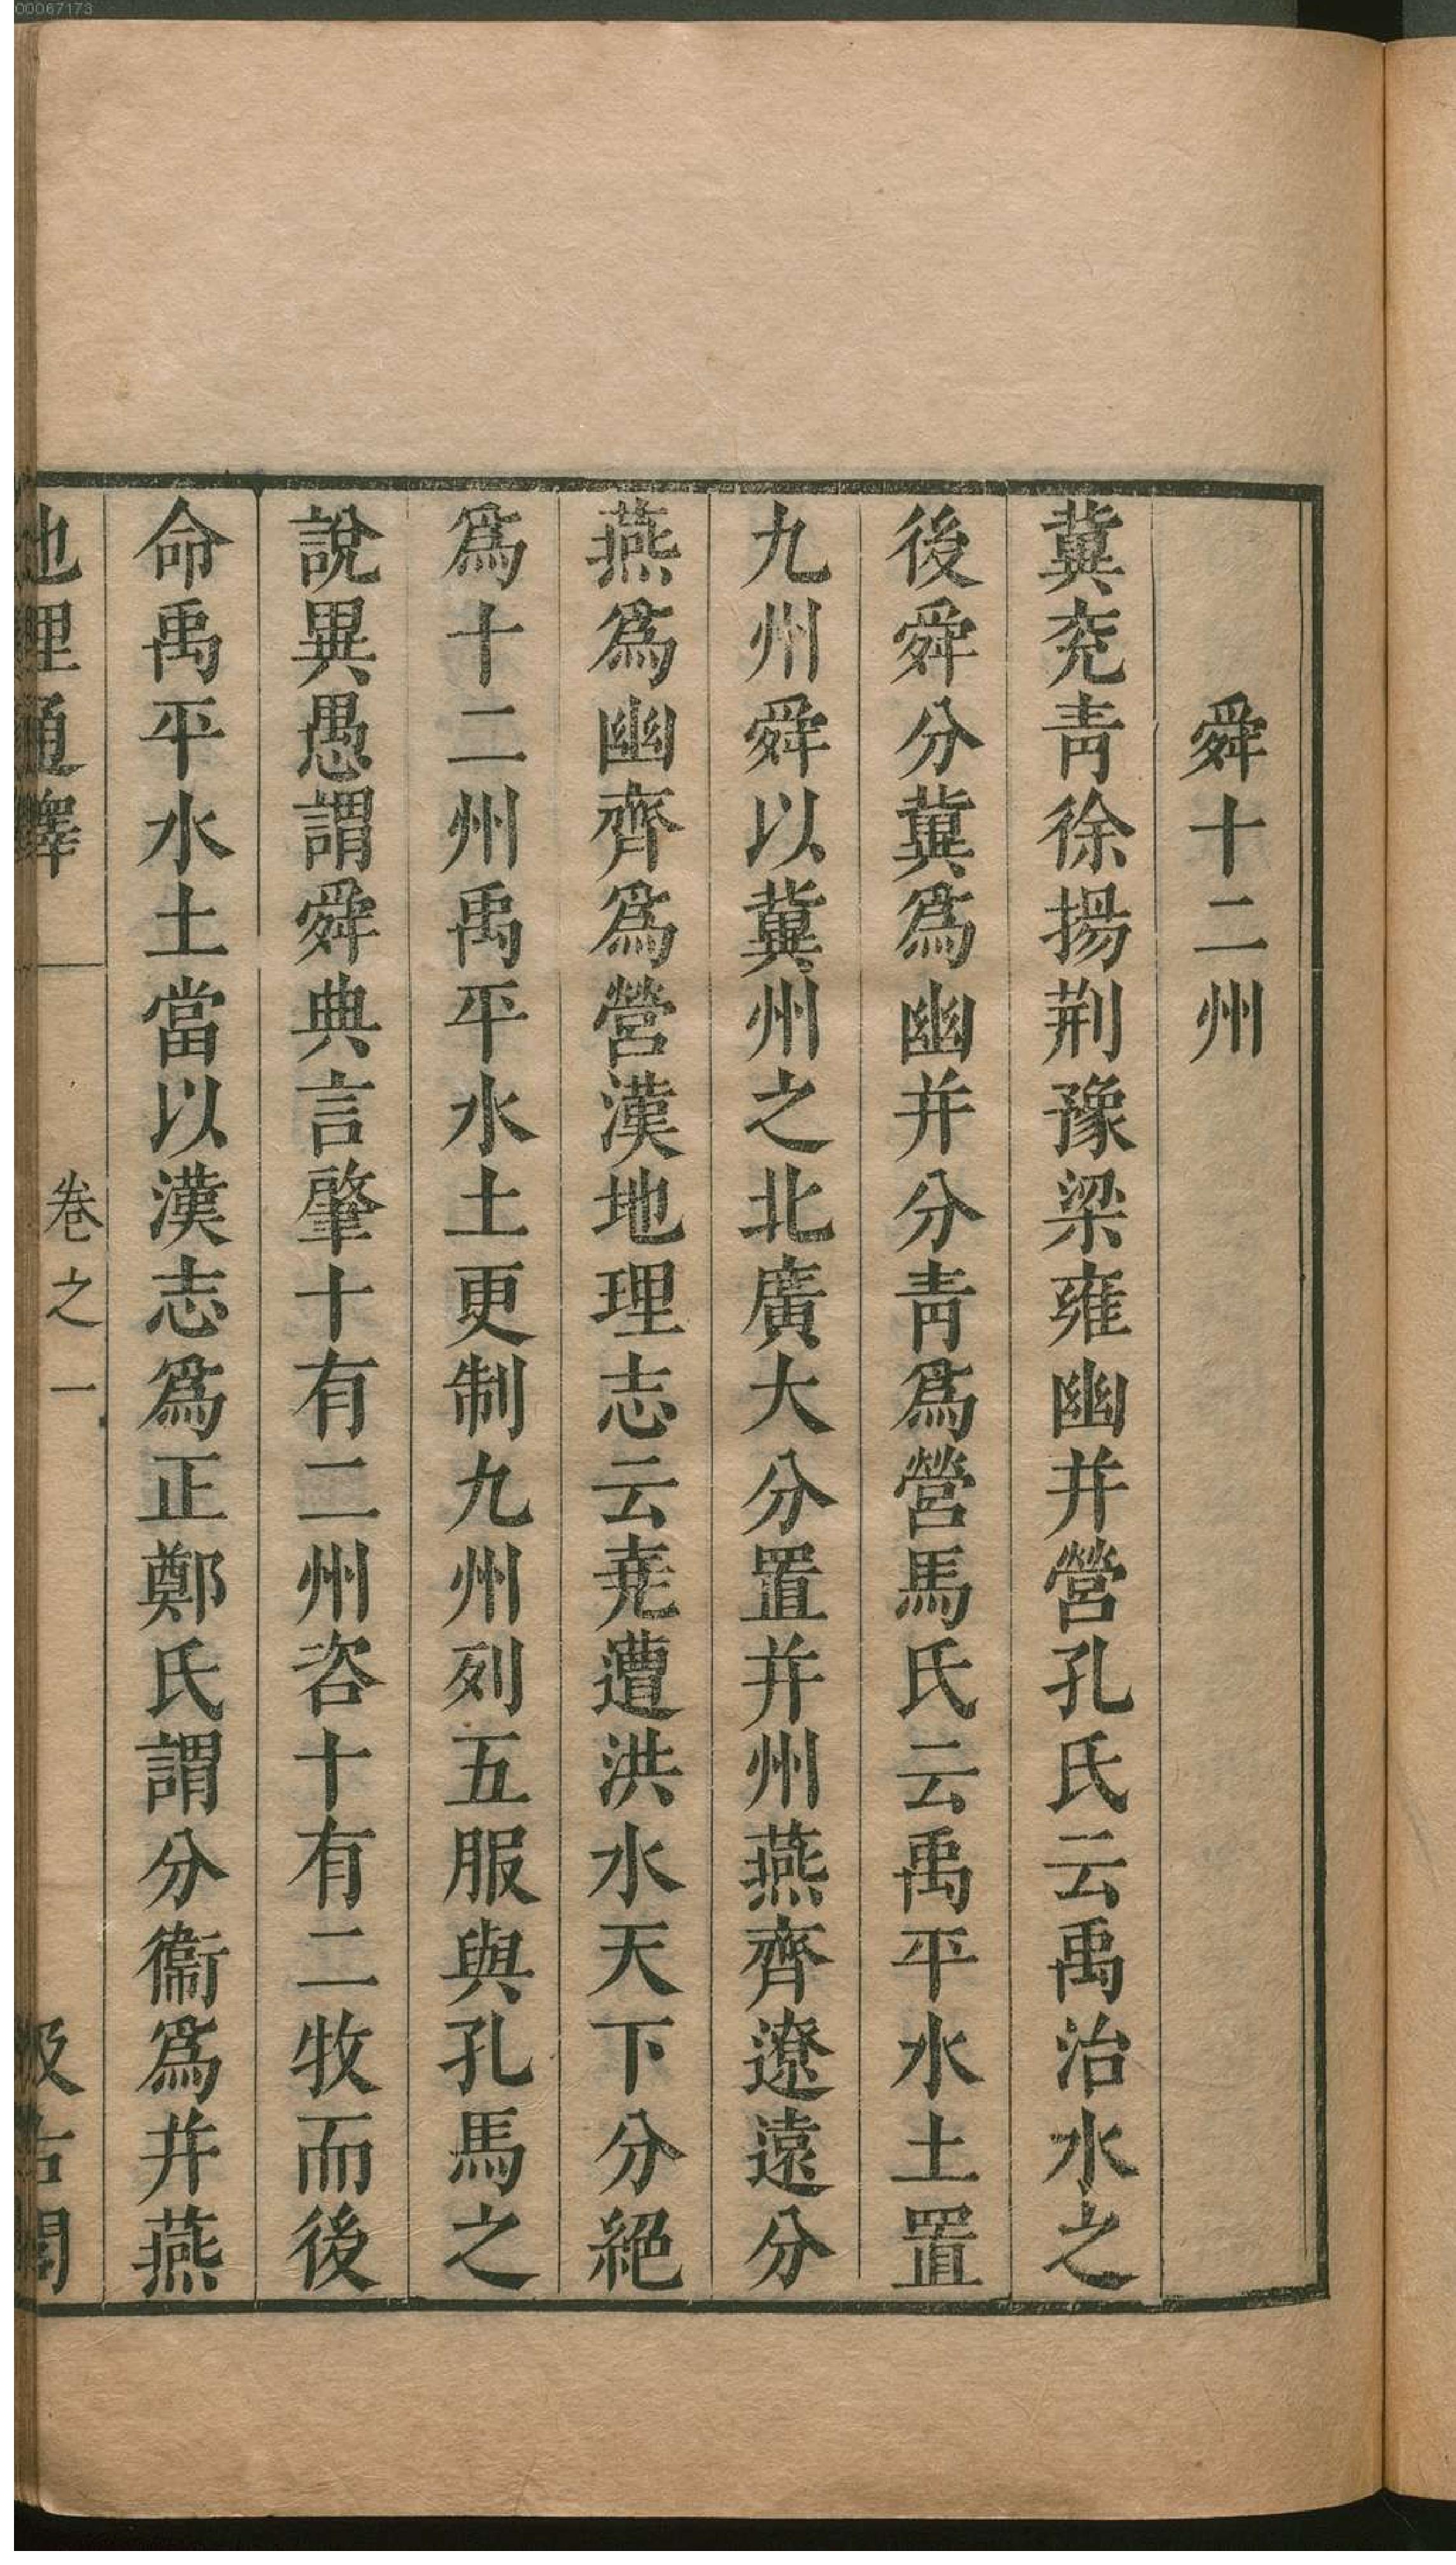 舜十二州
冀兖靑徐揚荆豫梁雍幽并營孔氏云禹治水之
後舜分冀爲幽并分靑爲營馬氏云禹平水土置
九州舜以冀州之北廣大分置并州燕齊遼遠分
燕爲幽齊爲營漢地理志云堯遭洪水天下分絕
爲十二州禹平水土更制九州列五服與孔馬之
說異愚謂舜典言肇十有二州咨十有二牧而後
命禹平水土當以漢志爲正鄭氏謂分衞爲并燕
地理通釋 卷之一 汲古閣
00067173